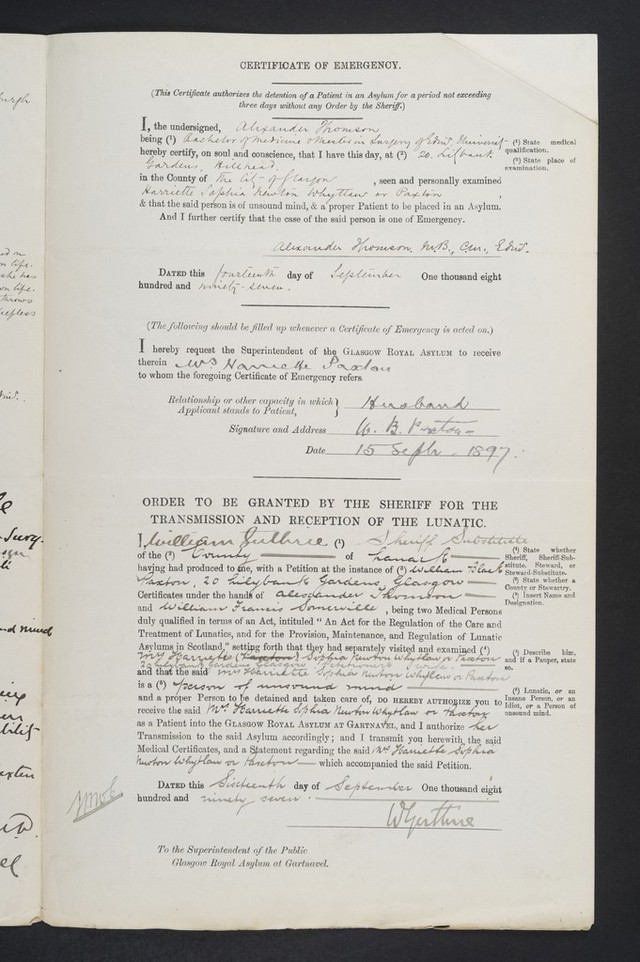 CERTIFICATE OF EMERGENCY.
(This Certificate authorizes the detention of a Patient in an Asylum for a period not exceeding
three days without any Order by the Sheriff.)
I, the undersigned, Alexander Thomson
being (¹) Bachelor of Medicine & Master in Surgery of Edinr. Universit-
hereby certify, on soul and conscience, that I have this day, at (²) 20, Lilybank
Gardens, Hillhead,
in the County of the City of Glasgow, seen and personally examined
Harriette Sophia Newton Whytlaw or Paxton,
& that the said person is of unsound mind, & a proper Patient to be placed in an Asylum.
And I further certify that the case of the said person is one of Emergency.
Alexander Thomson. M.B., C.M., Edinr.
DATED this fourteenth day of September One thousand eight
hundred and ninety-seven.
(¹) State medical
qualification.
(²) State place of
examination.
(The following should be filled up whenever a Certificate of Emergency is acted on.)
I hereby request the Superintendent of the GLASGOW ROYAL ASYLUM to receive
therein Mrs Harriette Paxton
to whom the foregoing Certificate of Emergency refers
Relationship or other capacity in which }
Applicant stands to Patient, Husband
Signature and Address W. B. Paxton
Date 15 Septbr. 1897.
ORDER TO BE GRANTED BY THE SHERIFF FOR THE
TRANSMISSION AND RECEPTION OF THE LUNATIC.
I, William Guthrie (¹) Sheriff Substitute
of the (²) County of Lanark
having had produced to me, with a Petition at the instance of (³) William Black
Paxton, 20 Lilybank Gardens, Glasgow
Certificates under the hands of Alexander Thomson
and William Francis Somerville, being two Medical Persons
duly qualified in terms of an Act, intituled "An Act for the Regulation of the Care and
Treatment of Lunatics, and for the Provision, Maintenance, and Regulation of Lunatic
Asylums in Scotland," setting forth that they had separately visited and examined (⁴)
Mrs Harriette (Paxton) Sophia Newton Whytlaw or Paxton
20 Lilybank Gardens Glasgow Petitioner's wife
and that the said Mrs Harriette Sophia Newton Whytlaw or Paxton
is a (⁵) person of unsound mind
and a proper Person to be detained and taken care of, DO HEREBY AUTHORIZE you to
receive the said Mrs Harriette Sophia Newton Whytlaw or Paxton
as a Patient into the GLASGOW ROYAL ASYLUM AT GARTNAVEL, and I authorize her
Transmission to the said Asylum accordingly; and I transmit you herewith the said
Medical Certificates, and a Statement regarding the said Mrs Harriette Sophia
Newton Whytlaw or Paxton which accompanied the said Petition.
DATED this Sixteenth day of September One thousand eight
hundred and ninety seven.
W Guthrie
(¹) State whether
Sheriff, Sheriff-Sub-
stitute, Steward, or
Steward-Substitute.
(²) State whether a
County or Stewartry.
(³) Insert Name and
Designation.
(⁴) Describe him,
and if a Pauper, state
so.
(⁵) Lunatic, or an
Insane Person, or an
Idiot, or a Person of
unsound mind.
To the Superintendent of the Public
Glasgow Royal Asylum at Gartnavel.